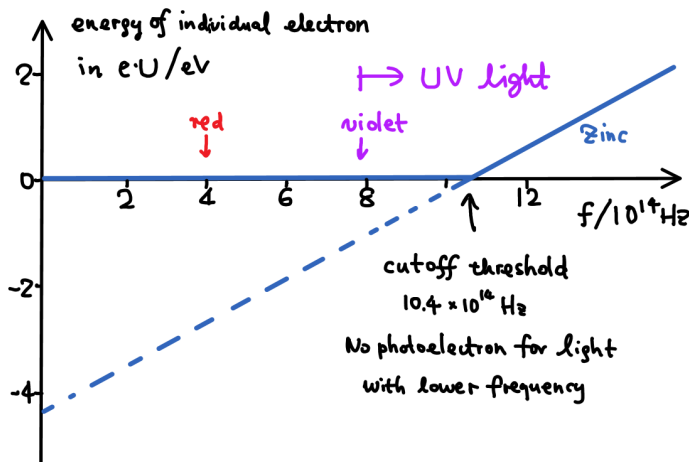 energy of individual electron
in e·U/eV
2
UV light
red
violet
zinc
0
2
4
6
8
10
12
f/10¹⁴ Hz
-2
cutoff threshold
10.4 × 10¹⁴ Hz
No photoelectron for light
with lower frequency
-4